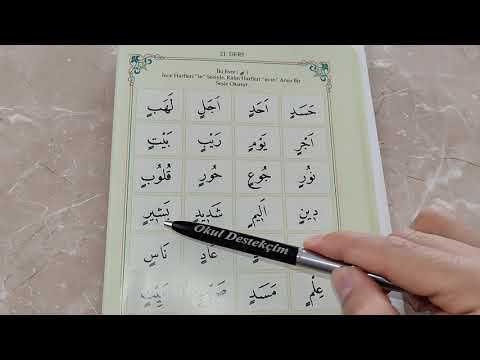 21. DERS
İki Esre ( ـٍ )
İnce Harfleri "in" Sesiyle, Kalın Harfleri Arası Bir
Sesle Okutur.
حَسَدٍ اَحَدٍ اَجَلٍ لَهَبٍ
اَجْرٍ يَوْمٍ رَيْبٍ بَيْتٍ
نُورٍ جُوعٍ حُورٍ قُلُوبٍ
دِينٍ اَلِيمٍ شَدِيدٍ بَشِيرٍ
عَادٍ نَاسٍ
عِلْمٍ مَسَدٍ
Okul Destekçim